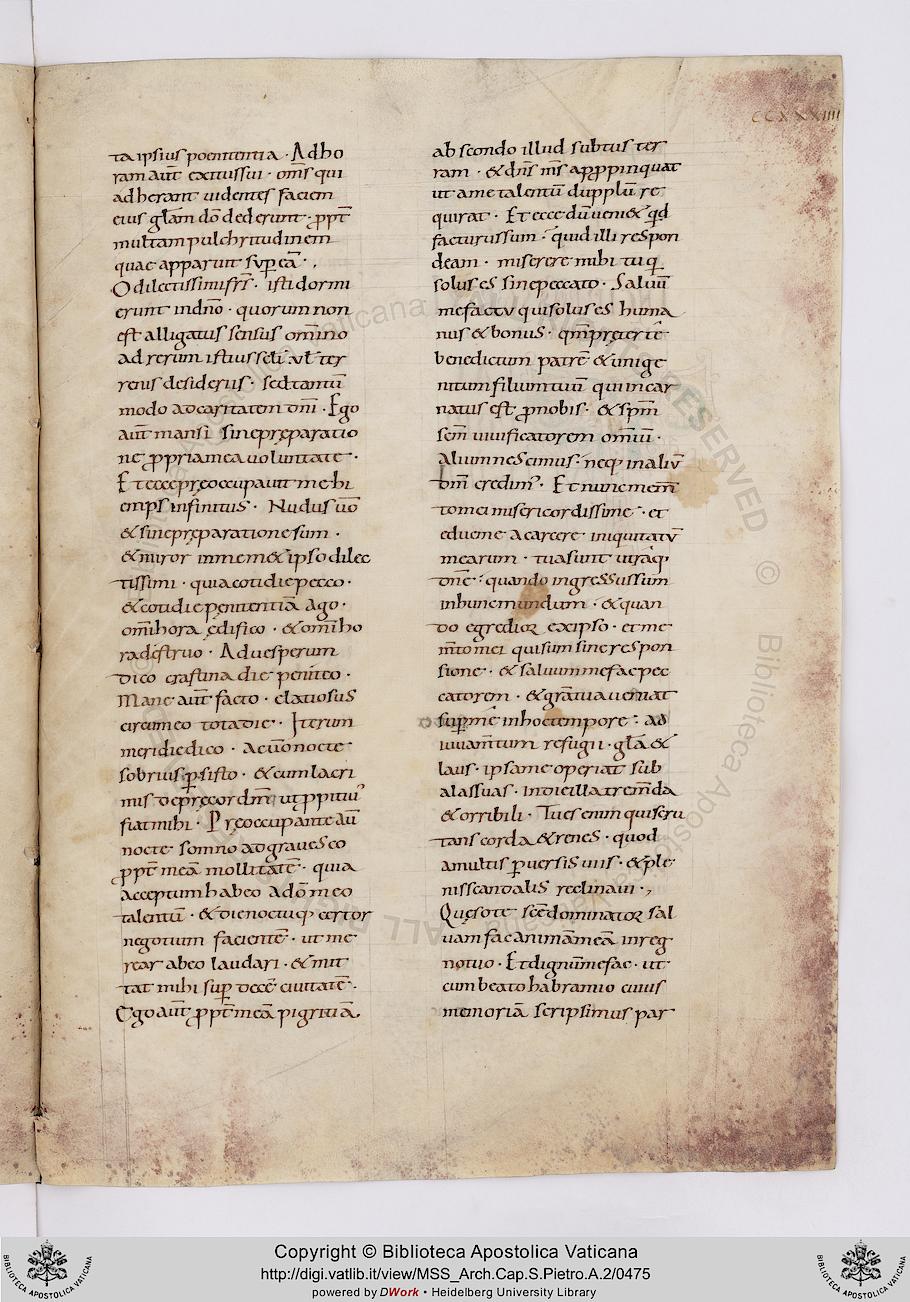 CCXXXIIII
ta ipsius poenitentia · Ad ho
ram aut̄ exitus sui · om̄s qui
adherant uidentes faciem
eius gl̄am dō dederunt · ꝓpt̄
multam pulchritudinem
quae apparuit suꝑ eā · ,
O dilectissimi fr̄s · isti dormi
erunt in dn̄o · quorum non
est alligatus sensus omīno
ad rerum istius sc̄li · vl̄ ter
renis desideriis · sed tantū
modo ad caritatem dn̄i · Ego
aut̄ mansi sine pręparatio
ne ꝓpria mea uoluntate ·
Et ecce pręoccupauit me hi
emps infinitus · Nudus uō
& sine pręparatione sum ·
& miror in mem& ipso dilec
tissimi · quia cotidie pecco ·
& cotidie pęnitentiā ago ·
omī hora ędifico · & omī ho
ra destruo · Ad uesperum
dico crastina die peniteo ·
Mane aut̄ facto · elatiosus
circumeo tota die · Iterum
meridie dico · ac uō nocte
sobrius ꝑsisto · & cum lacri
mis depręcor dn̄m ut ꝓpitiu'
fiat mihi · Pręoccupante aū
nocte somno adgrauesco
ꝓpt̄ meā mollitatē · quia
acceptum habeo a dō meo
talentū · & die noctuq; certor
negotium facientē · ut me
rear ab eo laudari · & mit
tat mihi suꝑ decē ciuitatē ·
Ego aut̄ ꝓpt̄ meā pigritiā
abscondo illud subtus ter
ram · & dn̄s m̄s apꝓpinquat
ut a me talentū dupplū re
quirat · Et ecce dū ueni& qd
facturus sum · quid illi respon
deam · miserere mihi tu q
solus es sine peccato · Saluū
me fac tu qui solus es huma
nus & bonus · qm̄ pręter te
benedictum patrē & unige
nitum filium tuū qui incar
natus est ꝓ nobis · & sp̄m
sc̄m uiuificatorem omīū ·
Alium nescimus · neq; in aliū
dm̄ credim' · Et nunc mem̄
to mei misericordissime · et
educ me a carcere iniquitatū
mearum · tua sunt utraq;
dn̄e · quando ingressus sum
in hunc mundum · & quan
do egredior ex eipso · et me
m̄to mei qui sum sine respon
sione · & saluum me fac pec
catorem · & gratia ueniat
suꝑ me in hoc tempore · ad
iuuam̄tum refugii · gl̄a &
laus · ipsa me operiat sub
alas suas · in die illa tremenda
& orribili · Tu es enim qui scru
tans corda & renes · quod
a multis ꝑuersis uiis · & ple
nis scandalis reclinaui · ,
Quęso te sc̄e dominator sal
uam fac animā meā in reg
no tuo · Et dignū me fac · ut
cum beato habramio cuius
memoriā scripsimus par
Copyright © Biblioteca Apostolica Vaticana
http://digi.vatlib.it/view/MSS_Arch.Cap.S.Pietro.A.2/0475
powered by DWork • Heidelberg University Library